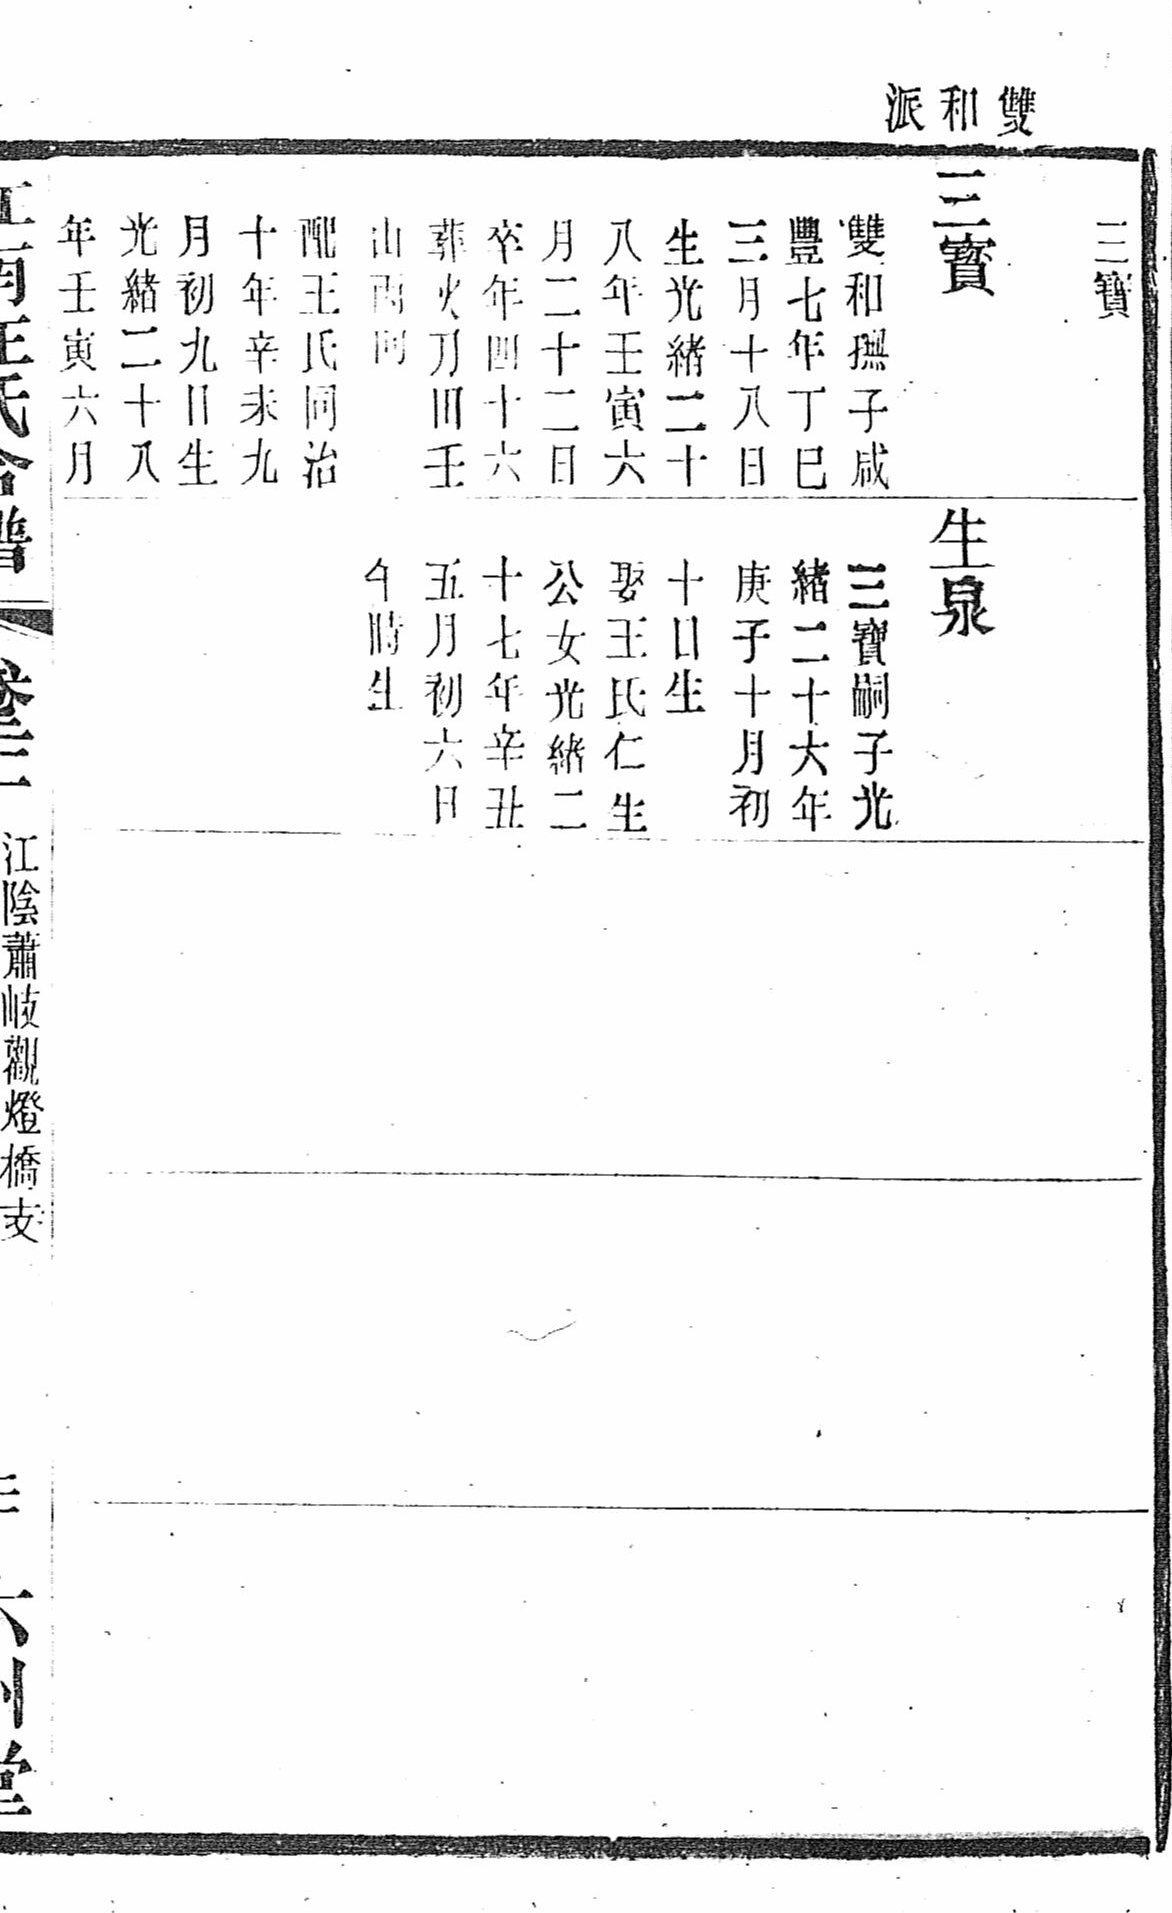 雙和派
三寶
三寶
雙和撫子咸
豐七年丁巳
三月十八日
生光緒二十
八年壬寅六
月二十二日
卒年四十六
葬火刀田壬
山丙向
配王氏同治
十年辛未九
月初九日生
光緒二十八
年壬寅六月
生泉
三寶嗣子光
緒二十六年
庚子十月初
十日生
娶王氏仁生
公女光緒二
十七年辛丑
五月初六日
午時生
江南汪氏合譜
卷三
江陰蕭岐觀燈橋支
六州堂